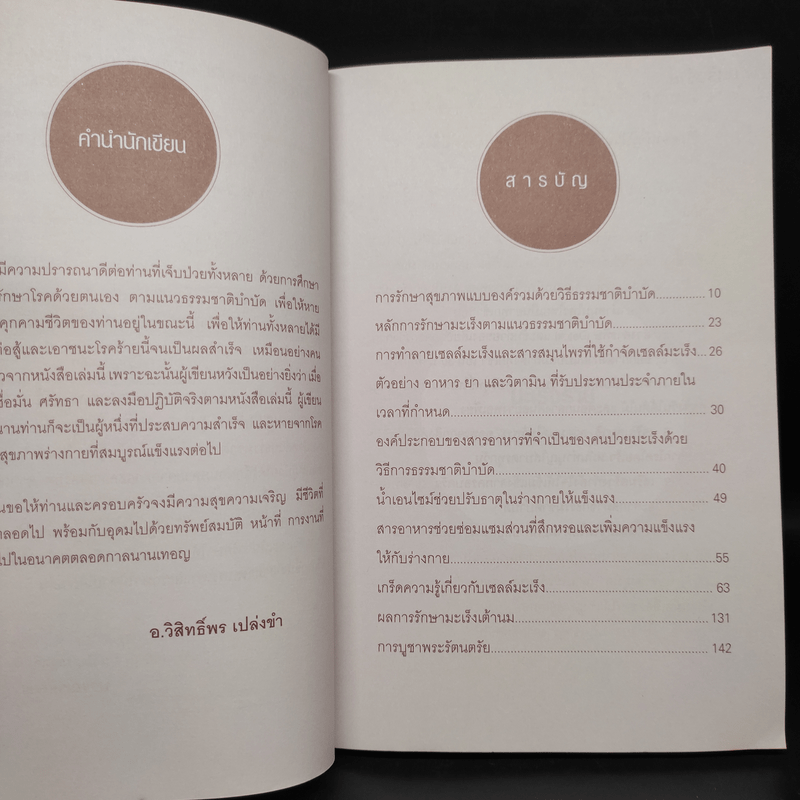 คำนำนักเขียน
มีความปรารถนาดีต่อท่านที่เจ็บป่วยทั้งหลาย ด้วยการศึกษา
รักษาโรคด้วยตนเอง ตามแนวธรรมชาติบำบัด เพื่อให้หาย
คุกคามชีวิตของท่านอยู่ในขณะนี้ เพื่อให้ท่านทั้งหลายได้มี
ต่อสู้และเอาชนะโรคร้ายนี้จนเป็นผลสำเร็จ เหมือนอย่างคน
จากหนังสือเล่มนี้ เพราะฉะนั้นผู้เขียนหวังเป็นอย่างยิ่งว่า เมื่อ
เชื่อมั่น ศรัทธา และลงมือปฏิบัติจริงตามหนังสือเล่มนี้ ผู้เขียน
ท่านก็จะเป็นผู้หนึ่งที่ประสบความสำเร็จ และหายจากโรค
สุขภาพร่างกายที่สมบูรณ์แข็งแรงต่อไป
ขอให้ท่านและครอบครัวจงมีความสุขความเจริญ มีชีวิตที่
ตลอดไป พร้อมกับอุดมไปด้วยทรัพย์สมบัติ หน้าที่ การงานที่
ไปในอนาคตตลอดกาลนานเทอญ
อ.วิสิทธิ์พร เปล่งขำ
สารบัญ
การรักษาสุขภาพแบบองค์รวมด้วยวิธีธรรมชาติบำบัด............... 10
หลักการรักษามะเร็งตามแนวธรรมชาติบำบัด........................ 23
การทำลายเซลล์มะเร็งและสารสมุนไพรที่ใช้กำจัดเซลล์มะเร็ง... 26
ตัวอย่าง อาหาร ยา และวิตามิน ที่รับประทานประจำภายใน
เวลาที่กำหนด.................................................................. 30
องค์ประกอบของสารอาหารที่จำเป็นของคนป่วยมะเร็งด้วย
วิธีการธรรมชาติบำบัด....................................................... 40
น้ำเอนไซม์ช่วยปรับธาตุในร่างกายให้แข็งแรง........................ 49
สารอาหารช่วยซ่อมแซมส่วนที่สึกหรอและเพิ่มความแข็งแรง
ให้กับร่างกาย...................................................................55
เกร็ดความรู้เกี่ยวกับเซลล์มะเร็ง.......................................... 63
ผลการรักษามะเร็งเต้านม................................................... 131
การบูชาพระรัตนตรัย......................................................... 142